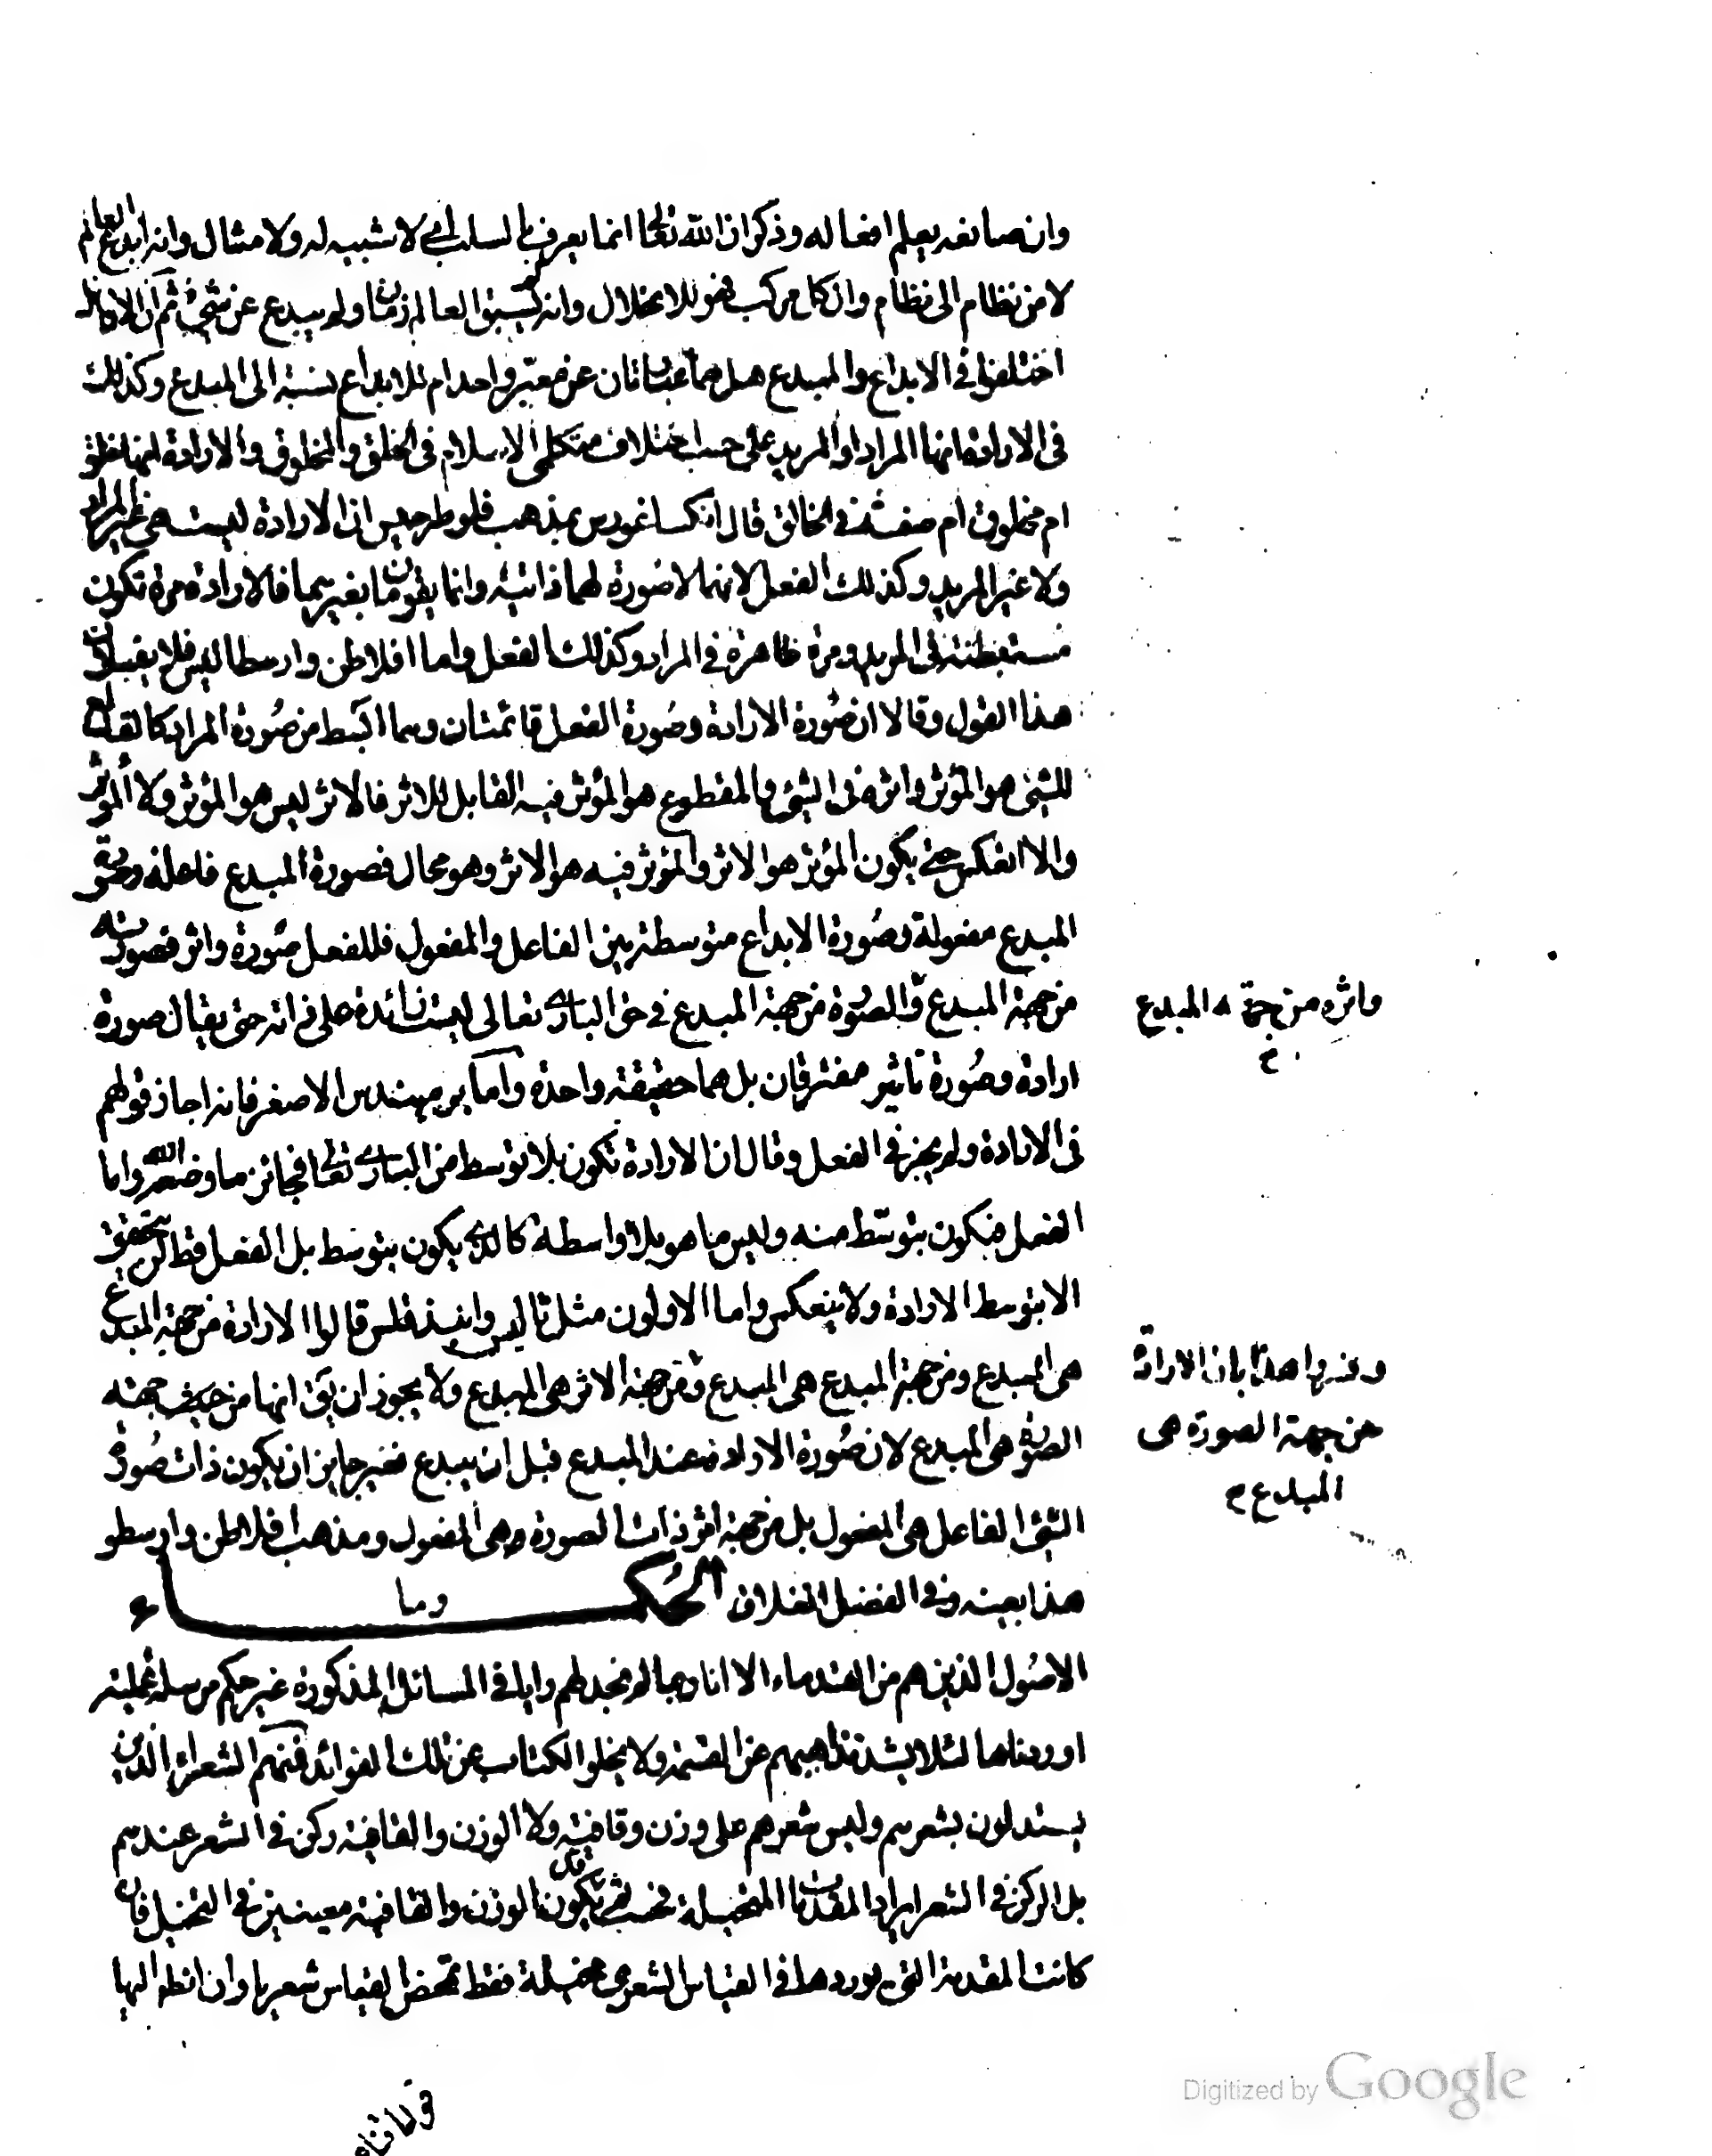 وان صانعه يعلم افعاله وذكر ان الله تعالى انما يعرف بالسلب اى لا شبيه له ولا مثال وانه ابدع العالم
لا من نظام الى نظام وان كل مركب فهو للانحلال وانه لم يسبق العالم زمان ولم يبدع عن شئ ثم ان الاوائل
اختلفوا فى الابداع والمبدع هل هما عبارتان عن معبر واحد ام للابداع نسبة الى المبدع وكذلك
فى الارادة انها المراد او المريد على حسب اختلاف متكلمى الاسلام فى الخلق والمخلوق والارادة انها خلق
ام مخلوق ام صفة فى الخالق قال انكساغورس بمذهب فلوطرخيس ان الارادة ليست هى غير المراد
ولا غير المريد وكذلك الفعل لانهما لا صورة لهما ذاتية وانما يقومان بغيرهما فالارادة مرة تكون
مستبطنة فى المريد ومرة ظاهرة فى المراد وكذلك الفعل واما افلاطن وارسطاليس فلا يقبلان
هذا القول وقالا ان صورة الارادة وصورة الفعل قائمتان وهما ابسط من صورة المراد كالقاطع
للشئ هو المؤثر واثره فى الشئ والمقطوع هو المؤثر فيه القابل للاثر فالاثر ليس هو المؤثر ولا المؤثر
والا انعكس حتى يكون المؤثر هو الاثر والمؤثر فيه هو الاثر وهو محال فصورة المبدع فاعلة وصورة
المبدع مفعولة وصورة الابداع متوسطة بين الفاعل والمفعول فللفعل صورة واثر فصورته
من جهة المبدع والصورة من جهة المبدع فى حق البارى تعالى ليست زائدة على ذاته حتى يقال صورة
واثره من جهة المبدع
ارادة وصورة تاثير مفترقان بل هما حقيقة واحدة واما برمنيدس الاصغر فانه اجاز قولهم
فى الارادة ولم يجز فى الفعل وقال ان الارادة تكون بلا توسط من البارى تعالى فجائز ما وضعه الله واما
الفعل فيكون بتوسط منه وليس ما هو بلا واسطة كالذى يكون بتوسط بل الفعل قط لن يتحقق
الا بتوسط الارادة ولا ينعكس واما الاولون مثل ثاليس وانبذقلس قالوا الارادة من جهة المبدع
هى المبدع ومن جهة المبدع هى المبدع ومن جهة الاثر هى المبدع ولا يجوز ان يق انها من حيث جهته
وفسروا هذا بان الارادة
من جهة الصورة هى
المبدع
الصورة هى المبدع لان صورة الارادة عند المبدع قبل ان يبدع فغير جايز ان يكون ذات صورة
الشئ الفاعل هى المفعول بل من جهة اثر ذات الصورة هى المفعول ومذهب افلاطن وارسطو
هذا بعينه وفى الفصل انغلاق الحكماء وما
الاصول الذين هم من القدماء الا انا ربما لم نجد لهم رايا فى المسائل المذكورة غير حكم مرسلة عملية
اوردناها لئلا يشذ مذاهبهم عن القسمة ولا يخلو الكتاب عن تلك الفوائد فمنهم الشعراء الذين
يستدلون بشعرهم وليس شعرهم على وزن وقافية ولا الوزن والقافية ركن فى الشعر عندهم
بل الركن فى الشعر ايراد المقدمات المخيلة فحسب ثم قد يكون الوزن والقافية معينين فى التخيل فان
كانت المقدمة التى يوردها فى القياس الشعرى مخيلة فقط تمحض القياس شعريا وان انظم اليها
Digitized by Google